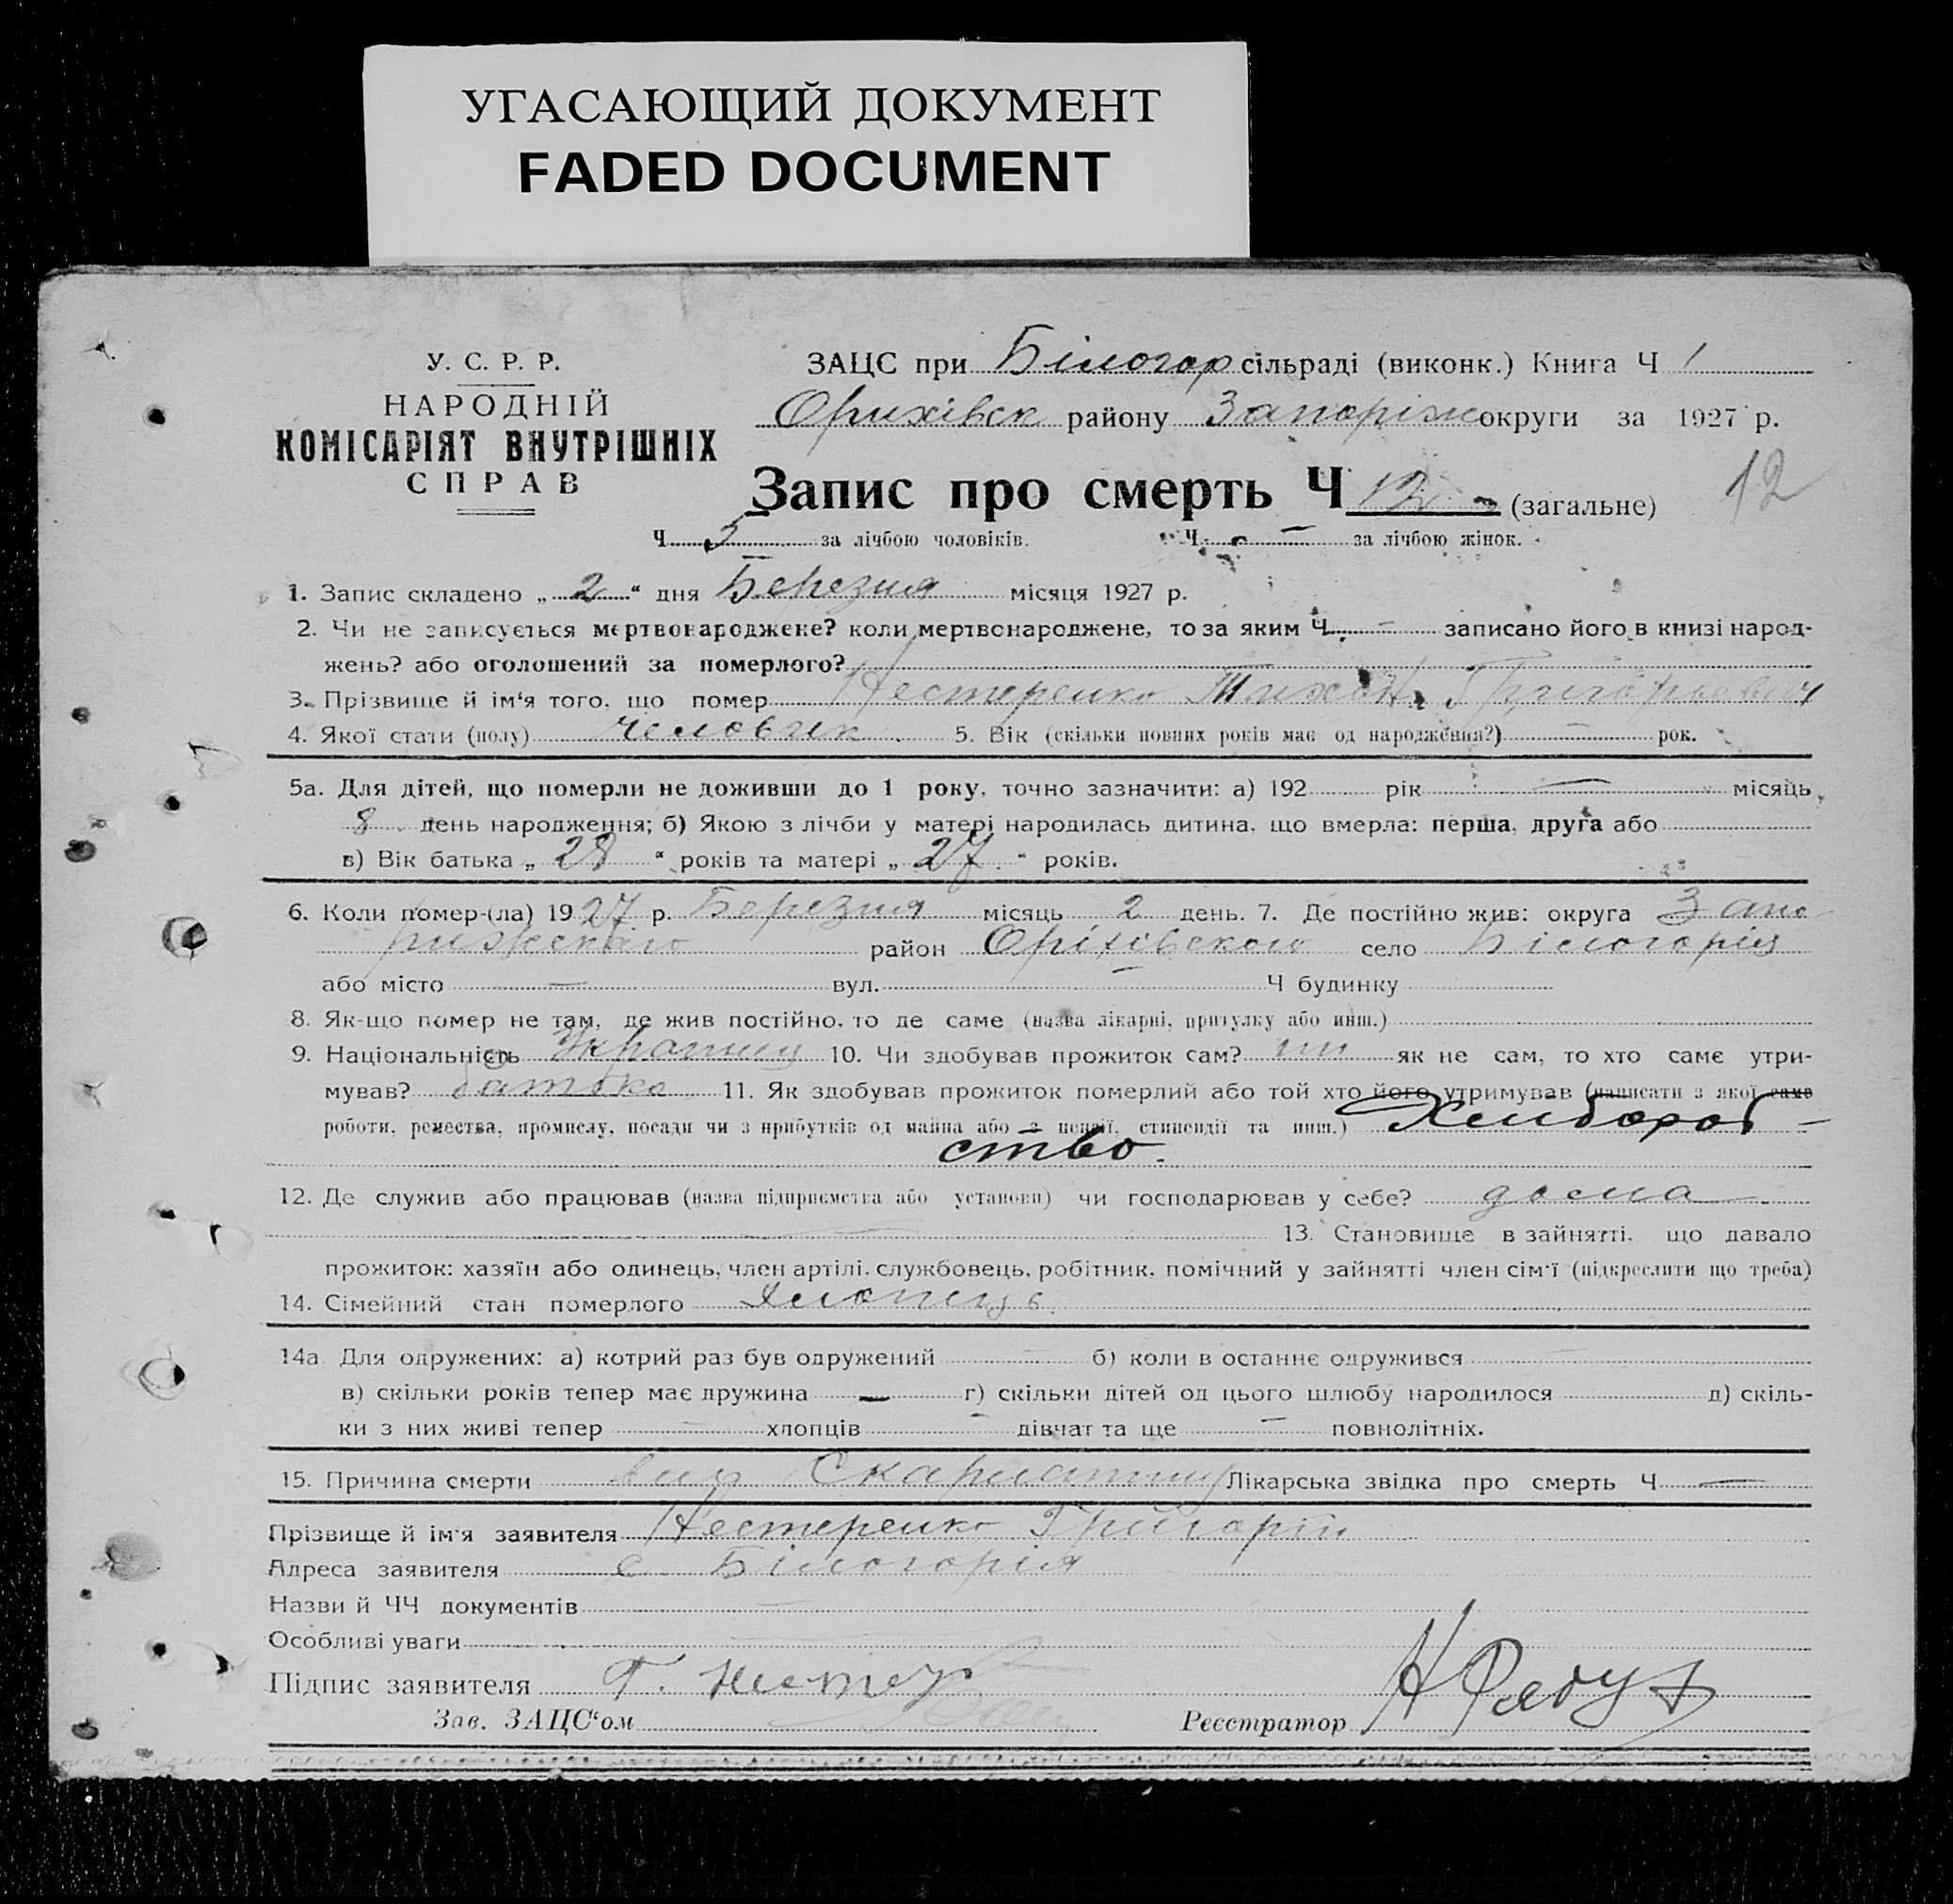 УГАСАЮЩИЙ ДОКУМЕНТ
FADED DOCUMENT
У. С. Р. Р.
НАРОДНІЙ
КОМІСАРІЯТ ВНУТРІШНІХ
СПРАВ
ЗАЦС при Білогор сільраді (виконк.) Книга Ч 1
Орихівск району Запоріж округи за 1927 р.
Запис про смерть Ч 12 (загальне) 12
Ч 5 за лічбою чоловіків. Ч — за лічбою жінок.
1. Запис складено „ 2 “ дня Березня місяця 1927 р.
2. Чи не записується мертвонароджене? коли мертвонароджене, то за яким Ч — записано його в книзі народ-
жень? або оголошений за померлого?
3. Прізвище й ім‘я того, що помер Нестеренко Тихон Григорьевич
4. Якої стати (полу) человик 5. Вік (скільки повних років має од народження?) — рок.
5а. Для дітей, що померли не доживши до 1 року, точно зазначити: а) 192 рік — місяць
8 день народження; б) Якою з лічби у матері народилась дитина, що вмерла: перша, друга або
в) Вік батька „ 28 “ років та матері „ 27 “ років.
6. Коли помер-(ла) 1927 р. Березня місяць 2 день. 7. Де постійно жив: округа Запо
рижскаго район Оріхівского село Білогорія
або місто — вул. — Ч будинку
8. Як-що помер не там, де жив постійно, то де саме (назва лікарні, притулку або инш.)
9. Національність Украинец 10. Чи здобував прожиток сам? ни як не сам, то хто саме утри-
мував? батько 11. Як здобував прожиток померлий або той хто його утримував (написати з якої саме
роботи, ремества, промислу, посади чи з прибутків од майна або з пенсії, стипендії та инш.) Хлибороб-
ство.
12. Де служив або працював (назва підприємства або установи) чи господарював у себе? дома
13. Становище в зайнятті, що давало
прожиток: хазяїн або одинець, член артілі, службовець, робітник, помічний у зайнятті член сім‘ї (підкреслити що треба)
14. Сімейний стан померлого Хлопець
14а Для одружених: а) котрий раз був одружений б) коли в останнє одружився
в) скільки років тепер має дружина — г) скільки дітей од цього шлюбу народилося д) скіль-
ки з них живі тепер — хлопців — дівчат та ще — повнолітніх.
15. Причина смерти Скарлатини Лікарська звідка про смерть Ч —
Прізвище й ім‘я заявителя Нестеренко Григорій
Адреса заявителя с. Білогорія
Назви й ЧЧ документів
Особливі уваги
Підпис заявителя Г. Нестер
Зав. ЗАЦС‘ом
Реєстратор